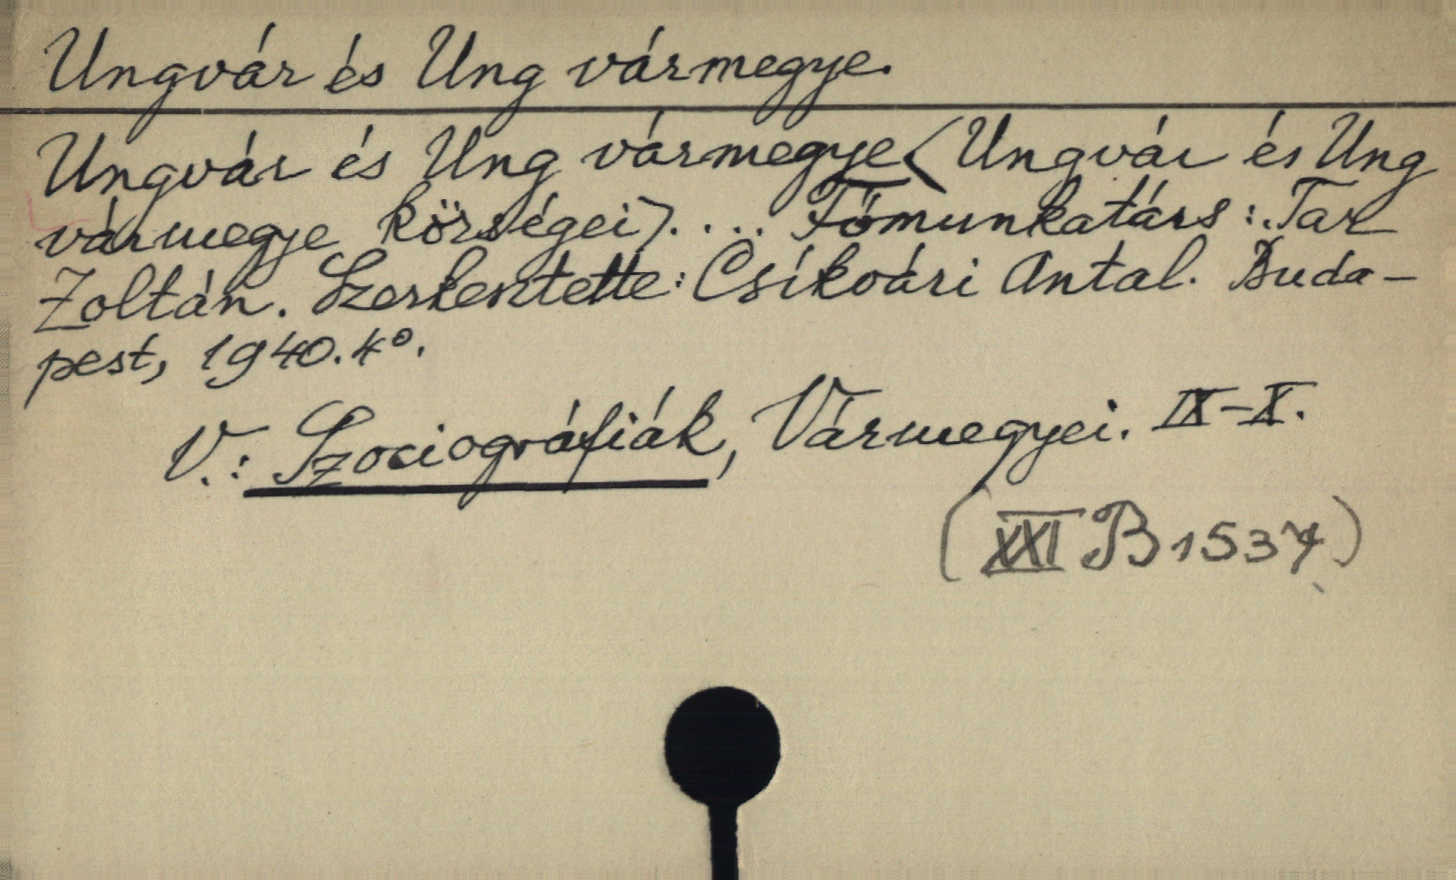 Ungvár és Ung vármegye.
Ungvár és Ung vármegye (Ungvár és Ung
vármegye községei). ... Főmunkatárs: Tar
Zoltán. Szerkesztette: Csíkvári Antal. Buda-
pest, 1940. 4°.
V.: Szociográfiák, Vármegyei. IX-X.
(XXI B 1537)